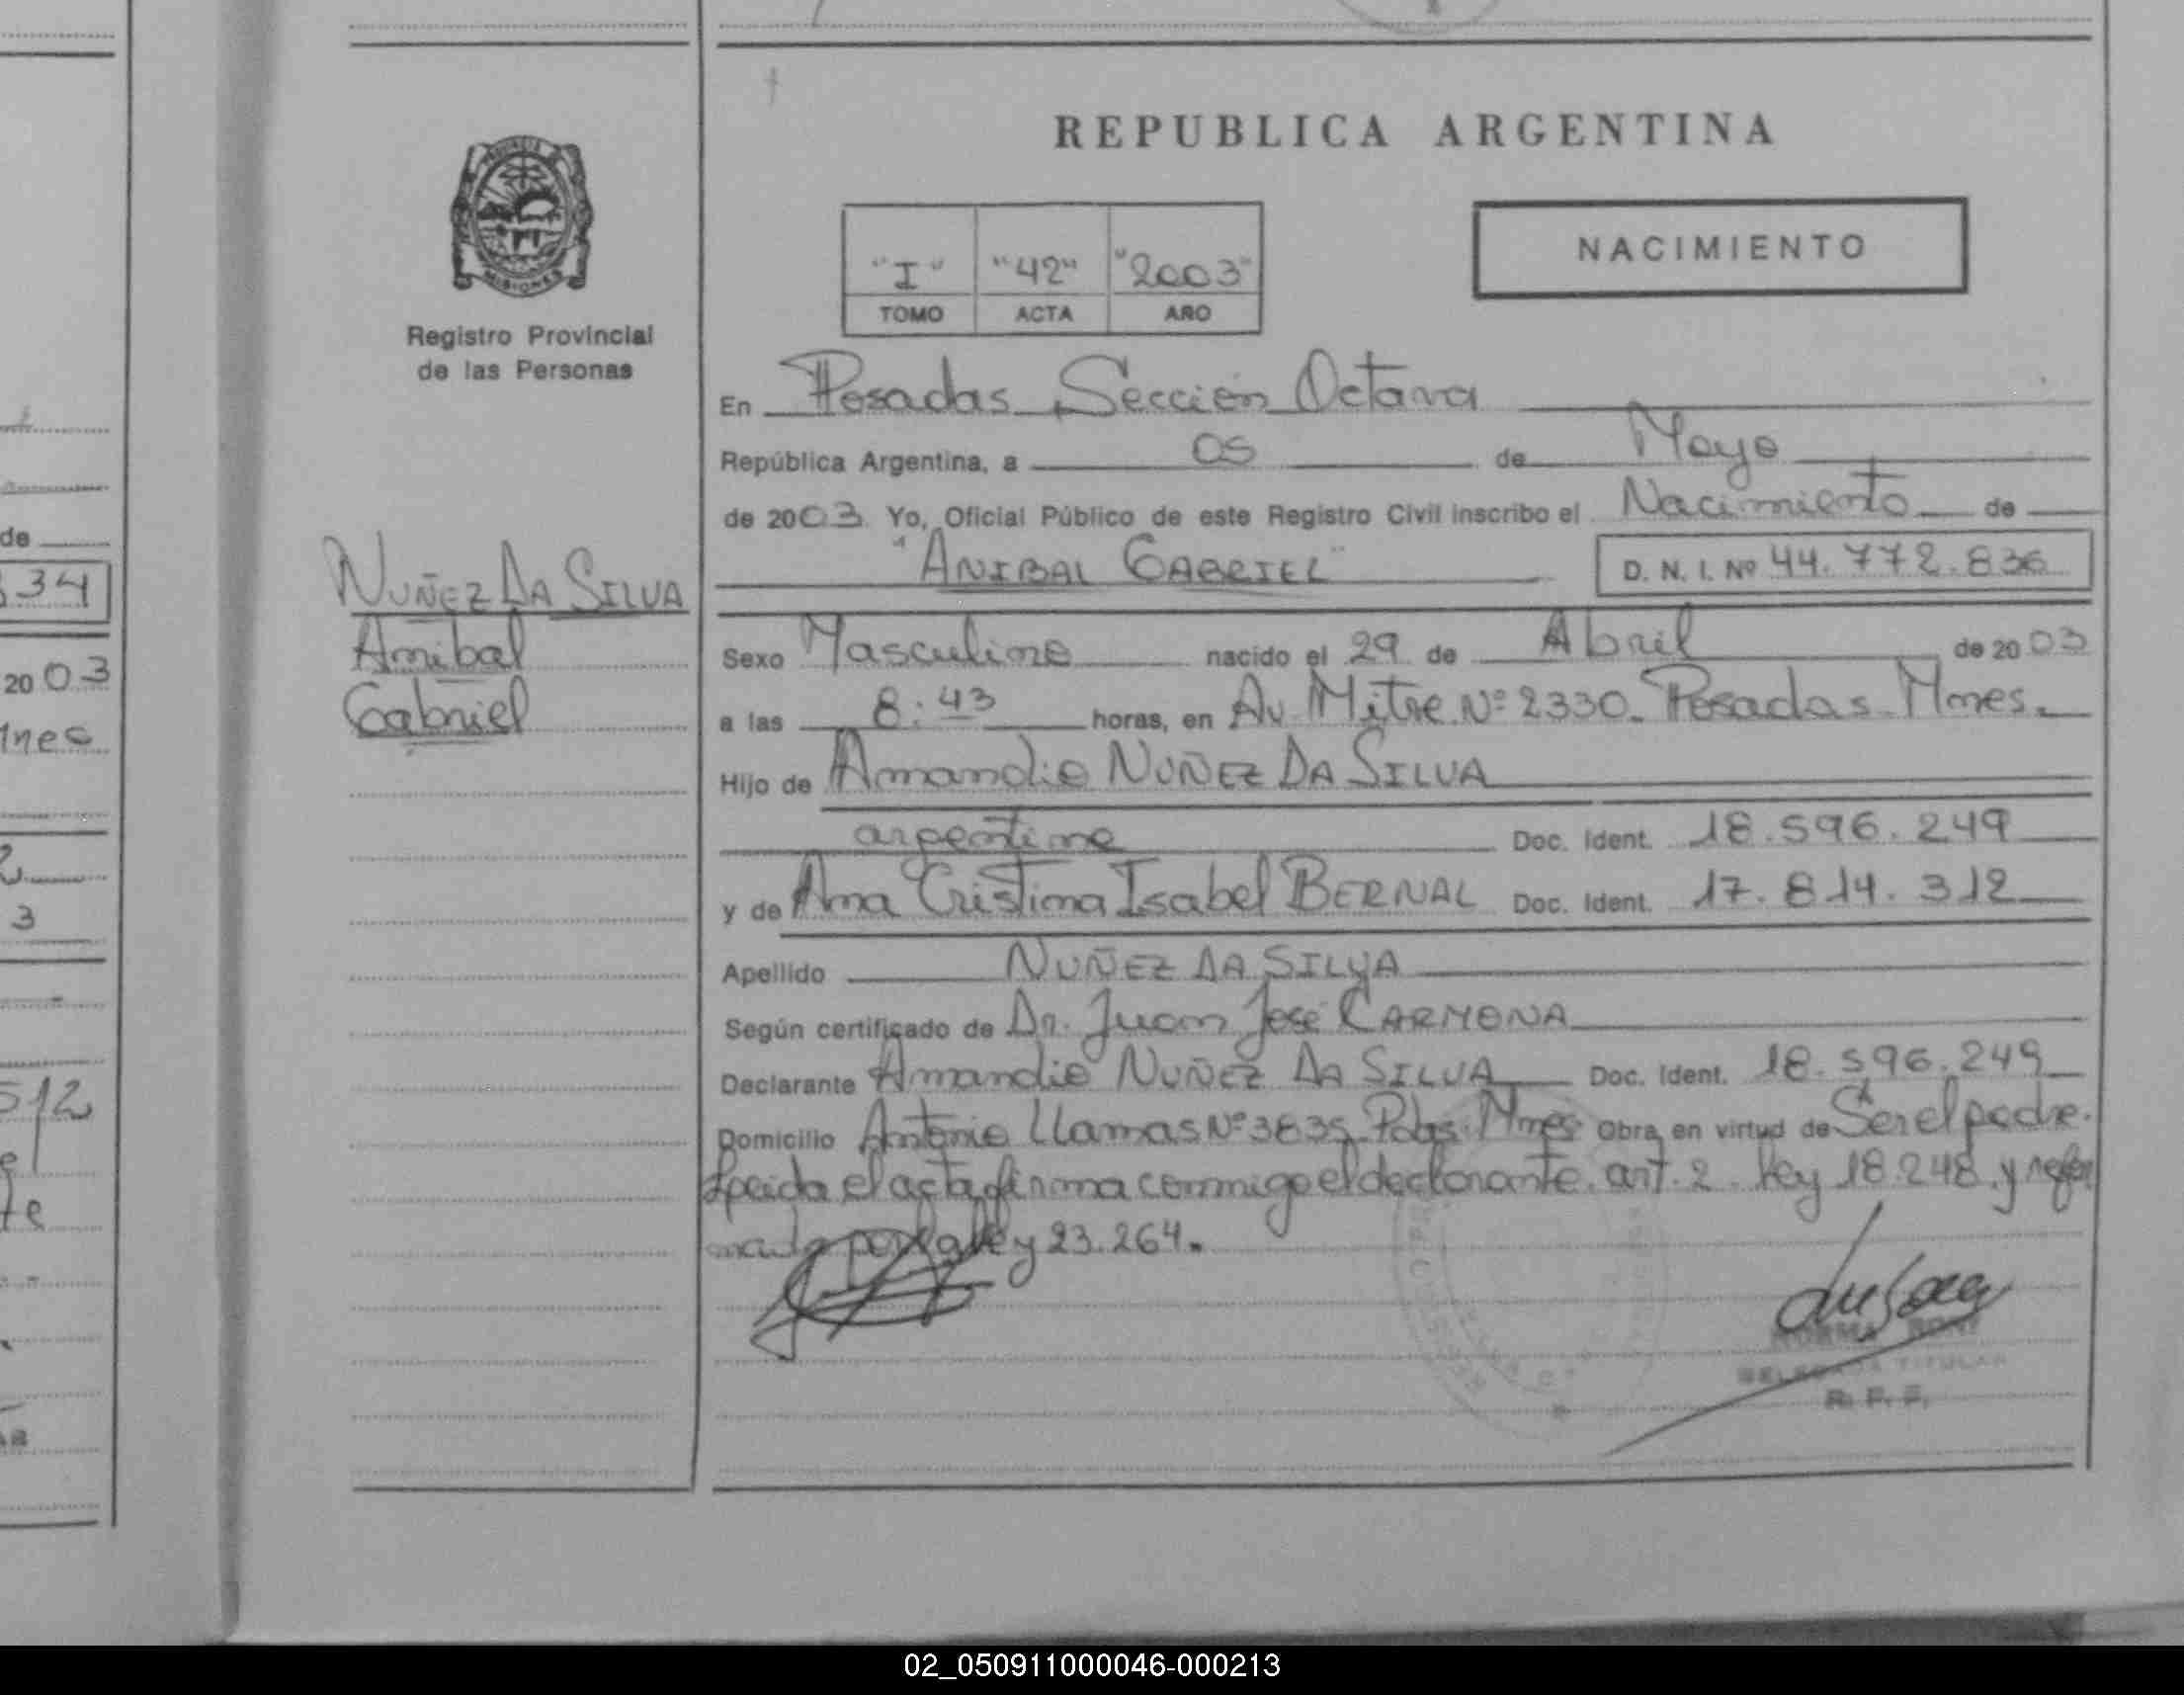 REPUBLICA ARGENTINA
NACIMIENTO
"I" "42" "2003"
TOMO ACTA AÑO
PROVINCIA DE
MISIONES
Registro Provincial
de las Personas
NUÑEZ DA SILVA
Anibal
Gabriel
En Posadas Sección Octava
República Argentina, a 05 de Mayo
de 2003 Yo, Oficial Público de este Registro Civil inscribo el Nacimiento de
"ANIBAL GABRIEL" D. N. I. Nº 44.772.836
Sexo Masculino nacido el 29 de Abril de 2003
a las 8:43 horas, en Av Mitre Nº 2330. Posadas Mnes.
Hijo de Amandio NUÑEZ DA SILVA
argentino Doc. Ident. 18.596.249
y de Ana Cristina Isabel BERNAL Doc. Ident. 17.814.312
Apellido NUÑEZ DA SILVA
Según certificado de Dr. Juan José CARMONA
Declarante Amandio NUÑEZ DA SILVA Doc. Ident. 18.596.249
Domicilio Antonio Llamas Nº 3835 Pdas. Mnes Obra en virtud de Ser el padre.
Leida el acta firma conmigo el declarante. art. 2. Ley 18.248. y refor
mada por la ley 23.264.
NORMA
DELEGADA TITULAR
R. P. P.
34
2003
Mnes
3
512
02_050911000046-000213